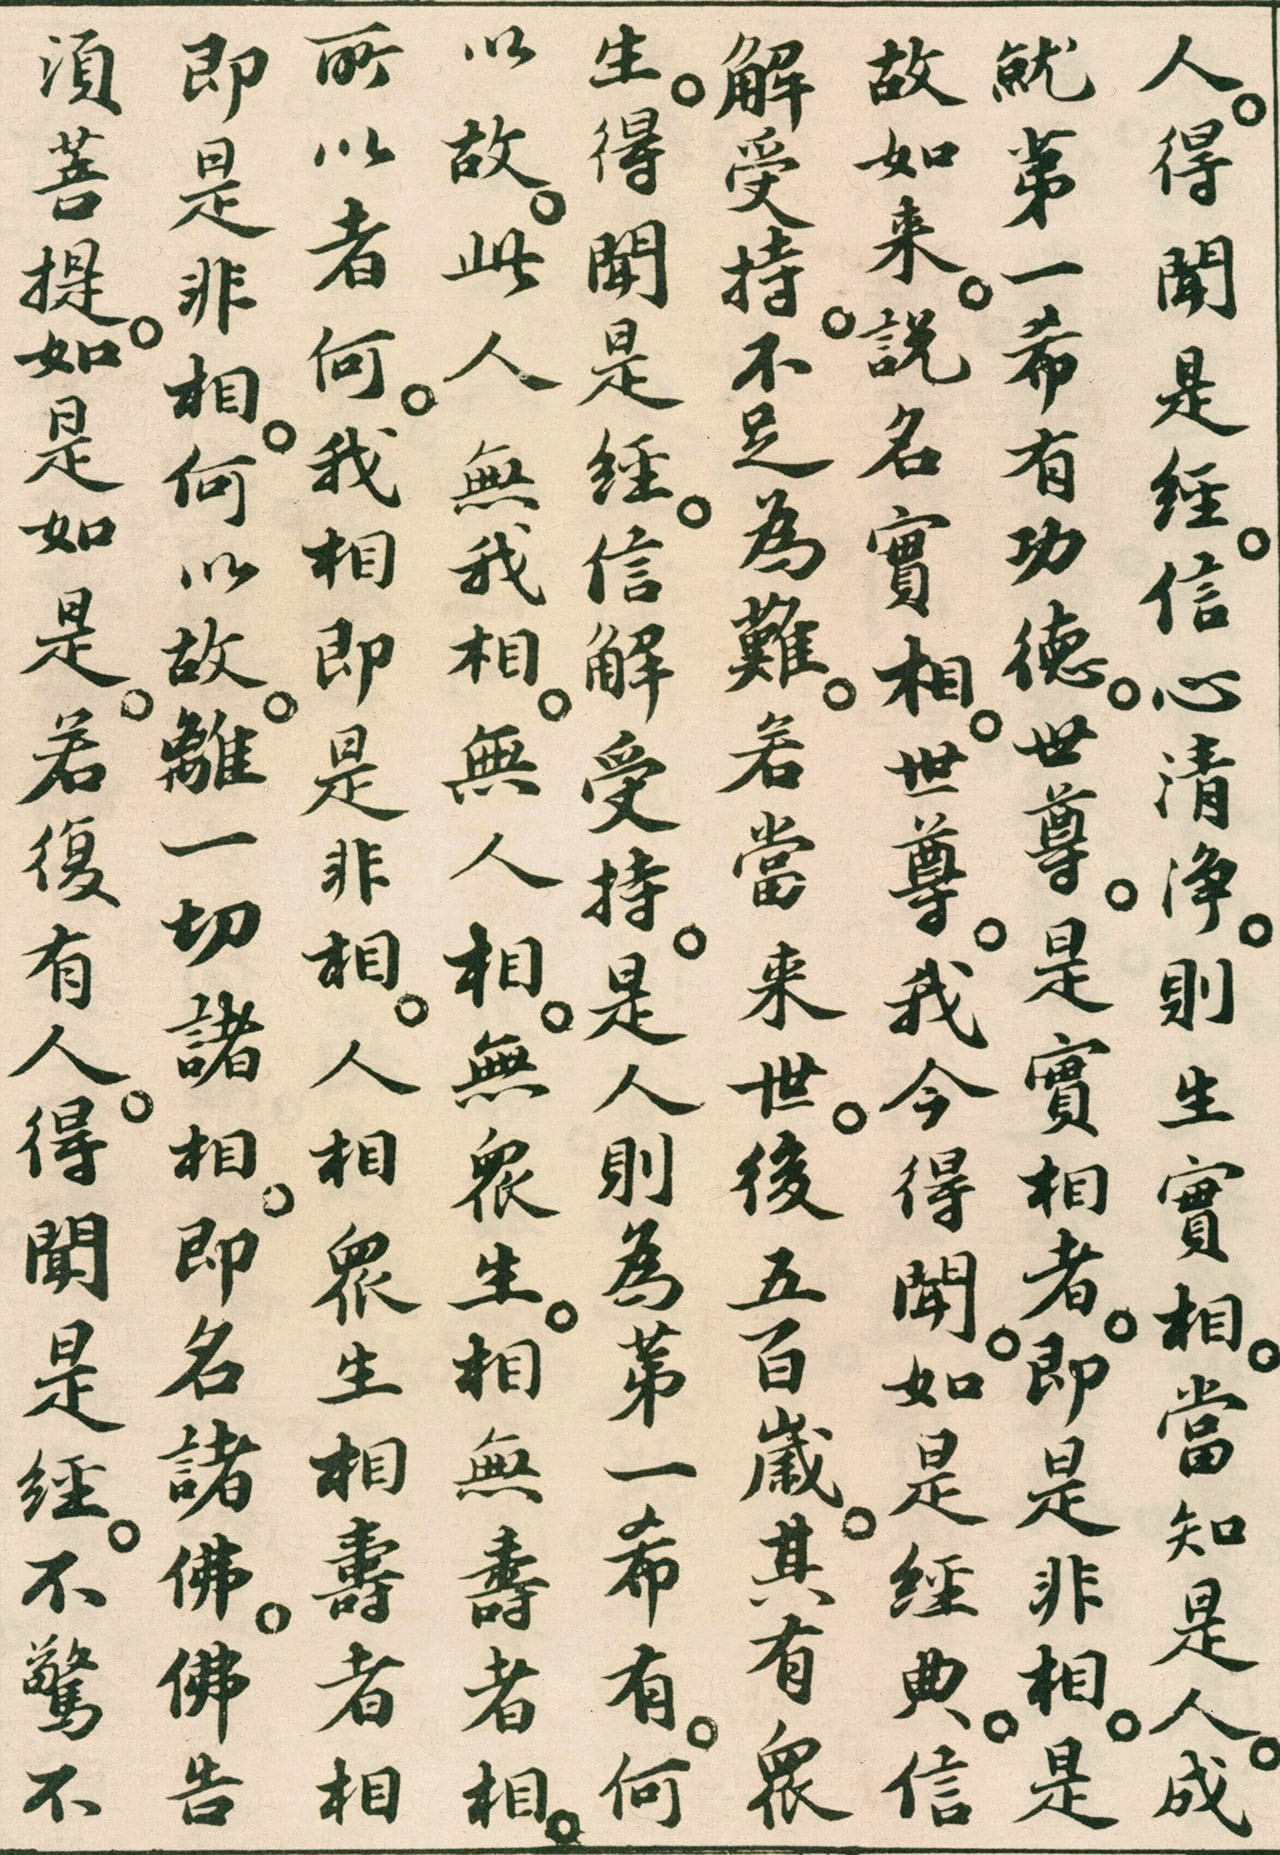 人。得聞是經。信心清淨。則生實相。當知是人。成
就第一希有功德。世尊。是實相者。即是非相。是
故如来。説名實相。世尊。我今得聞。如是經典。信
解受持。不足為難。若當来世。後五百歲。其有衆
生。得聞是經。信解受持。是人則為第一希有。何
以故。此人無我相。無人相。無衆生。相無壽者相。
所以者何。我相即是非相。人相衆生相壽者相
即是非相。何以故。離一切諸相。即名諸佛。佛告
須菩提。如是如是。若復有人。得聞是經。不驚不